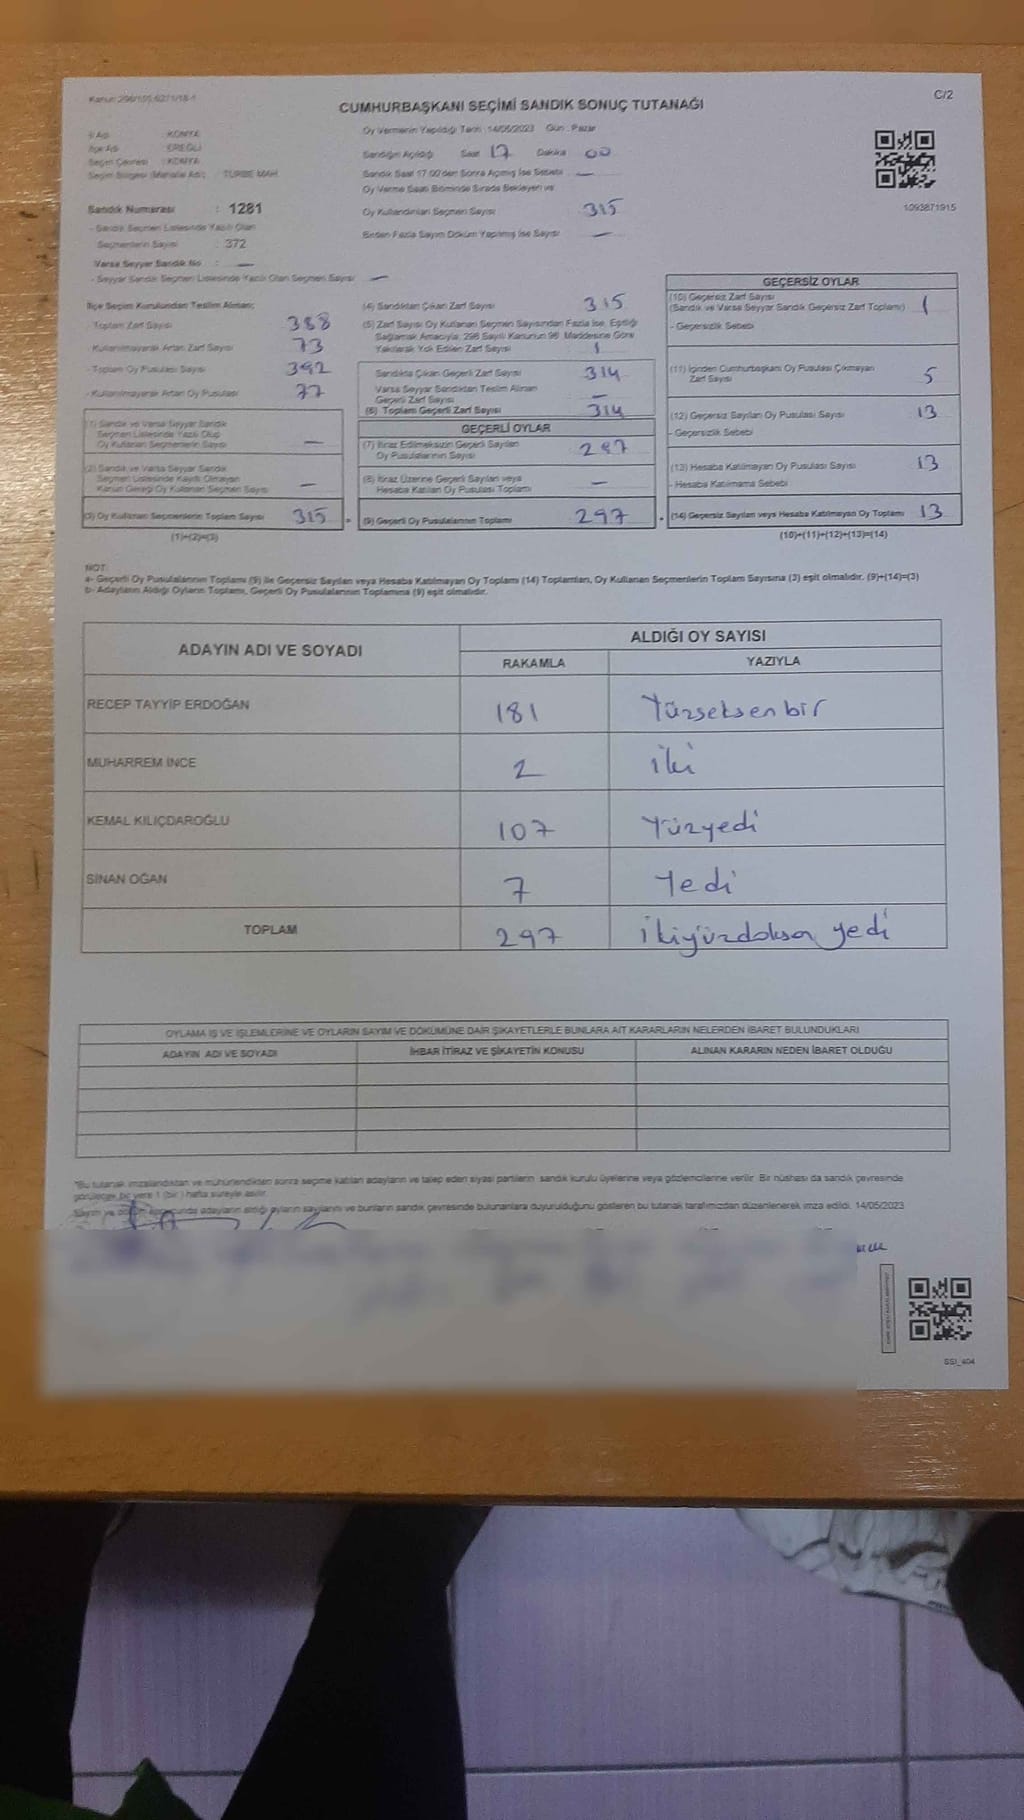 Kanun 298/105,6271/18-1
C/2
CUMHURBAŞKANI SEÇİMİ SANDIK SONUÇ TUTANAĞI
İl Adı : KONYA
İlçe Adı : EREĞLİ
Seçim Çevresi : KONYA
Seçim Bölgesi (Mahalle Adı) : TÜRBE MAH.
Oy Vermenin Yapıldığı Tarih : 14/05/2023 Gün : Pazar
Sandığın Açıldığı Saat 17 Dakika 00
Sandık Saat 17:00'den Sonra Açılmış İse Sebebi —
Oy Verme Saati Bitiminde Sırada Bekleyen ve
1093871915
Sandık Numarası : 1281
Oy Kullandırılan Seçmen Sayısı 315
- Sandık Seçmen Listesinde Yazılı Olan
Seçmenlerin Sayısı : 372
Birden Fazla Sayım Döküm Yapılmış İse Sayısı —
Varsa Seyyar Sandık No : —
- Seyyar Sandık Seçmen Listesinde Yazılı Olan Seçmen Sayısı —
İlçe Seçim Kurulundan Teslim Alınan;
- Toplam Zarf Sayısı 388
- Kullanılmayarak Artan Zarf Sayısı 73
- Toplam Oy Pusulası Sayısı 392
- Kullanılmayarak Artan Oy Pusulası 77
(1) Sandık ve Varsa Seyyar Sandık
Seçmen Listesinde Yazılı Olup
Oy Kullanan Seçmenlerin Sayısı —
(2) Sandık ve Varsa Seyyar Sandık
Seçmen Listesinde Kayıtlı Olmayan
Kanun Gereği Oy Kullanan Seçmen Sayısı —
(3) Oy Kullanan Seçmenlerin Toplam Sayısı 315
(1)+(2)=(3)
(4) Sandıktan Çıkan Zarf Sayısı 315
(5) Zarf Sayısı Oy Kullanan Seçmen Sayısından Fazla İse, Eşitliği
Sağlamak Amacıyla, 298 Sayılı Kanunun 98. Maddesine Göre
Yakılarak Yok Edilen Zarf Sayısı 1
Sandıkta Çıkan Geçerli Zarf Sayısı 314
Varsa Seyyar Sandıktan Teslim Alınan
Geçerli Zarf Sayısı —
(6) Toplam Geçerli Zarf Sayısı 314
GEÇERLİ OYLAR
(7) İtiraz Edilmeksizin Geçerli Sayılan
Oy Pusulalarının Sayısı 297
(8) İtiraz Üzerine Geçerli Sayılan veya
Hesaba Katılan Oy Pusulası Toplamı —
(9) Geçerli Oy Pusulalarının Toplamı 297
GEÇERSİZ OYLAR
(10) Geçersiz Zarf Sayısı
(Sandık ve Varsa Seyyar Sandık Geçersiz Zarf Toplamı) 1
- Geçersizlik Sebebi
(11) İçinden Cumhurbaşkanı Oy Pusulası Çıkmayan
Zarf Sayısı 5
(12) Geçersiz Sayılan Oy Pusulası Sayısı 13
- Geçersizlik Sebebi
(13) Hesaba Katılmayan Oy Pusulası Sayısı 13
- Hesaba Katılmama Sebebi
(14) Geçersiz Sayılan veya Hesaba Katılmayan Oy Toplamı 13
(10)+(11)+(12)+(13)=(14)
NOT:
a- Geçerli Oy Pusulalarının Toplamı (9) ile Geçersiz Sayılan veya Hesaba Katılmayan Oy Toplamı (14) Toplamları, Oy Kullanan Seçmenlerin Toplam Sayısına (3) eşit olmalıdır. (9)+(14)=(3)
b- Adayların Aldığı Oyların Toplamı, Geçerli Oy Pusulalarının Toplamına (9) eşit olmalıdır.
ADAYIN ADI VE SOYADI
ALDIĞI OY SAYISI
RAKAMLA YAZIYLA
RECEP TAYYİP ERDOĞAN 181 Yüzseksenbir
MUHARREM İNCE 2 iki
KEMAL KILIÇDAROĞLU 107 Yüzyedi
SİNAN OĞAN 7 Yedi
TOPLAM 297 ikiyüzdoksan yedi
OYLAMA İŞ VE İŞLEMLERİNE VE OYLARIN SAYIM VE DÖKÜMÜNE DAİR ŞİKAYETLERLE BUNLARA AİT KARARLARIN NELERDEN İBARET BULUNDUKLARI
ADAYIN ADI VE SOYADI İHBAR İTİRAZ VE ŞİKAYETİN KONUSU ALINAN KARARIN NEDEN İBARET OLDUĞU
*Bu tutanak imzalandıktan ve mühürlendikten sonra seçime katılan adayların ve talep eden siyasi partilerin sandık kurulu üyelerine veya gözlemcilerine verilir. Bir nüshası da sandık çevresinde
görülecek bir yere 1 (bir) hafta süreyle asılır.
Sayım ve döküm sonucunda adayların aldığı oyların sayılarını ve bunların sandık çevresinde bulunanlara duyurulduğunu gösteren bu tutanak tarafımızdan düzenlenerek imza edildi. 14/05/2023
SSI_404